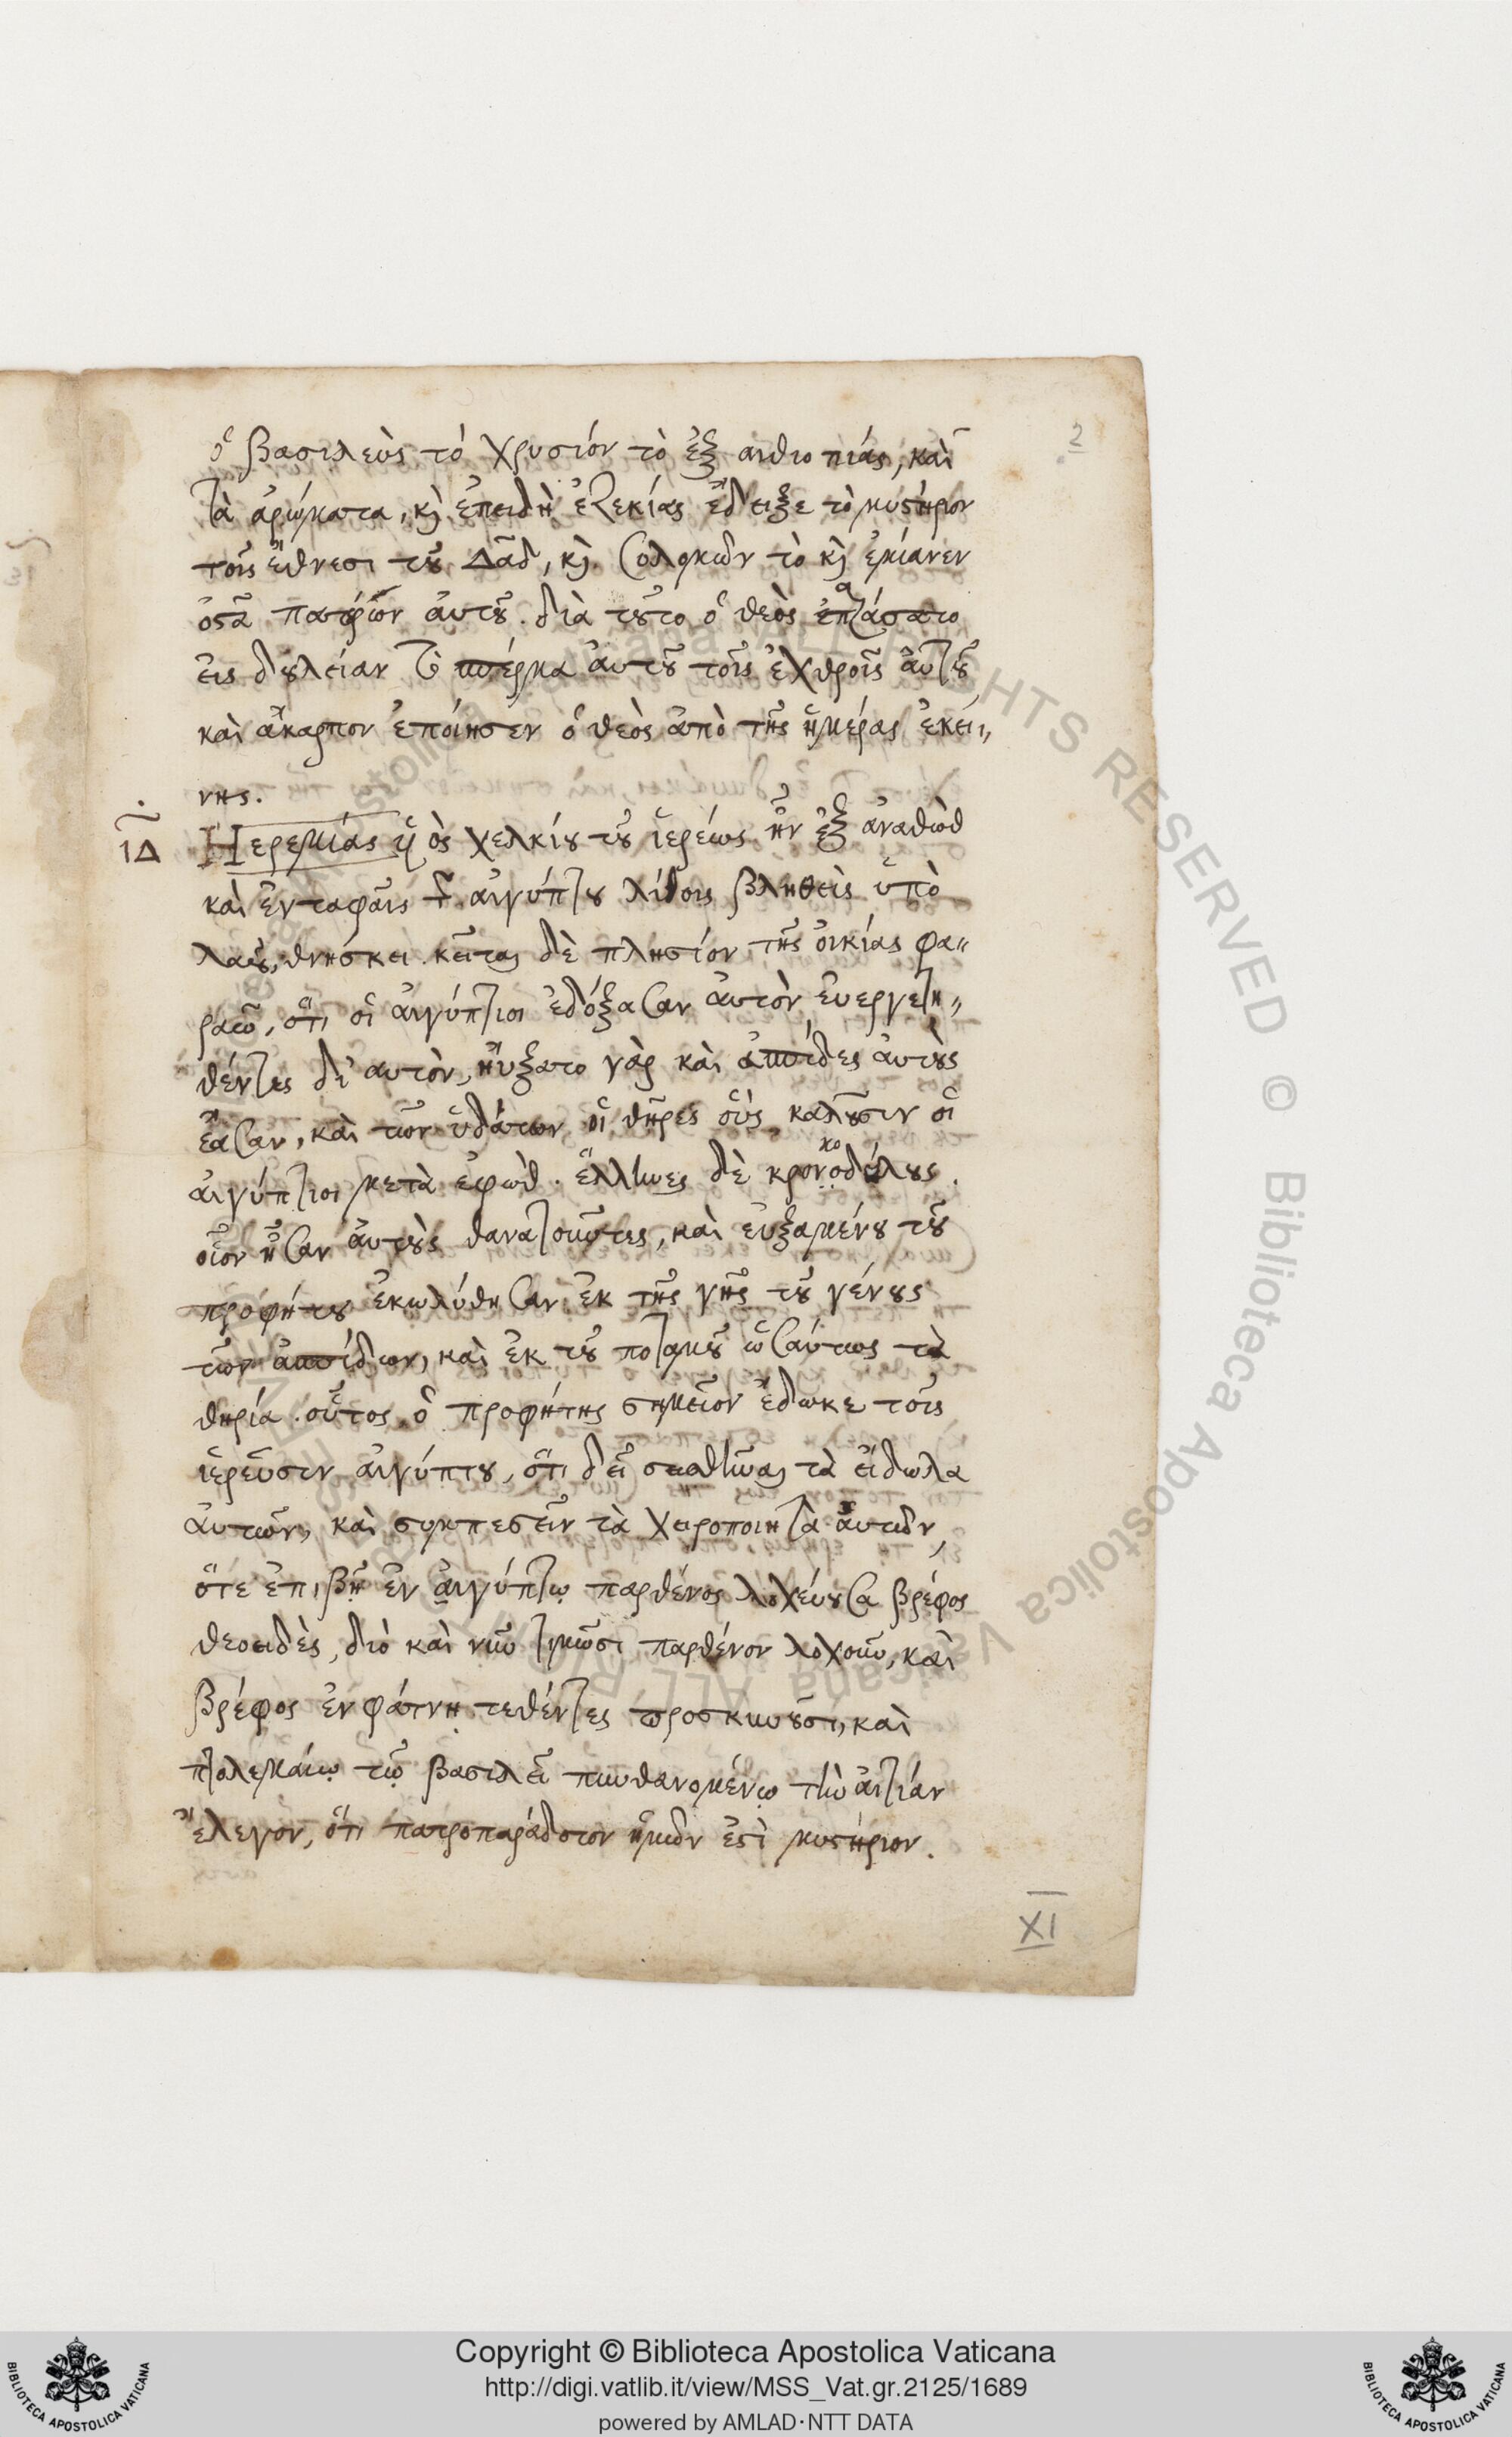 2
ὁ βασιλεὺς τὸ χρυσίον τὸ ἐξ αιθιοπιάς, καὶ
τὰ ἀρώματα, κὶ ἐπειδὴ ἐζεκίας ἔδειξε τὸ μυστήριον
τοῖς ἔθνεσι τοῦ Δᾶδ, κὶ Σολομῶν τὸ κὶ ἐμίανεν
ὀστᾶ πατρίον ἀυτοῦ. διὰ τοῦτο ὁ θεὸς
εἰς δουλείαν τὸ σπέρμα ἀυτοῦ τοῖς ἐχθροῖς ἀυτοῦ
καὶ ἄκαρπον ἐποίησεν ὁ θεὸς ἀπὸ τῆς ἡμέρας ἐκεί〃
νης.
ΙΔ
Ἱερεμίας ὑὸς χελκίου τοῦ ἱερέως ἦν ἐξ ἀναθὼθ
καὶ ἐν ταφαῖς τ̅ ἀιγύπτου λίθοις βληθεὶς ὑπὸ
λαοῦ, θνήσκει. κεῖται δὲ πλησίον τῆς ὀικίας φα〃
ραῶ, ὅτι οἱ ἀιγύπτιοι ἐδόξασαν ἀυτὸν ἐυεργετη〃
θέντες δι' αυτὸν, ἤυξατο γὰρ καὶ ἀσπίδες ἀυτοὺς
ἔασαν, καὶ τῶν ὑδάτων οἱ θῆρες οὓς καλοῦσιν οἱ
ἀιγύπτιοι μετὰ ἐφὼθ. ἕλληνες δὲ κροκοδείλους.
οἷον ἦσαν ἀυτοὺς θανατοῦντες, καὶ ἐυξαμένου τοῦ
προφήτου ἐκωλύθησαν ἐκ τῆς γῆς τοῦ γένους
τῶν ἀσπίδων, καὶ ἐκ τοῦ ποταμοῦ ὡσαύτως τὰ
θηρία. οὗτος ὁ προφήτης σημεῖον ἔδωκε τοῖς
ἱερεῦσιν ἀιγύπτου, ὅτι δεῖ σεισθῆναι τὰ ἔιδωλα
ἀυτῶν, καὶ συμπεσεῖν τὰ χειροποιητὰ ἀυτῶν
ὅτε ἐπιβῇ ἐν ἀιγύπτῳ παρθένος λοχεύουσα βρέφος
θεοειδὲς, διὸ καὶ νῦν τιμῶσι παρθένον λοχοῦν, καὶ
βρέφος ἐν φάτνῃ τεθέντες προσκυνοῦσι, καὶ
πτολεμαίῳ τῷ βασιλεῖ πυνθανομένῳ τὴν ἀιτίαν
ἔλεγον, ὅτι πατροπαράδοτον ἡμῶν ἐστὶ μυστήριον.
XI
Copyright © Biblioteca Apostolica Vaticana
http://digi.vatlib.it/view/MSS_Vat.gr.2125/1689
powered by AMLAD·NTT DATA